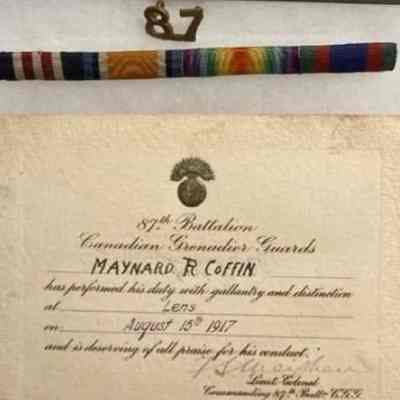 87
87th Battalion
Canadian Grenadier Guards
MAYNARD R COFFIN
has performed his duty with gallantry and distinction
at Lens
on August 15th 1917
and is deserving of all praise for his conduct.
Lieut. Colonel
Commanding 87th Battn C.G.G.